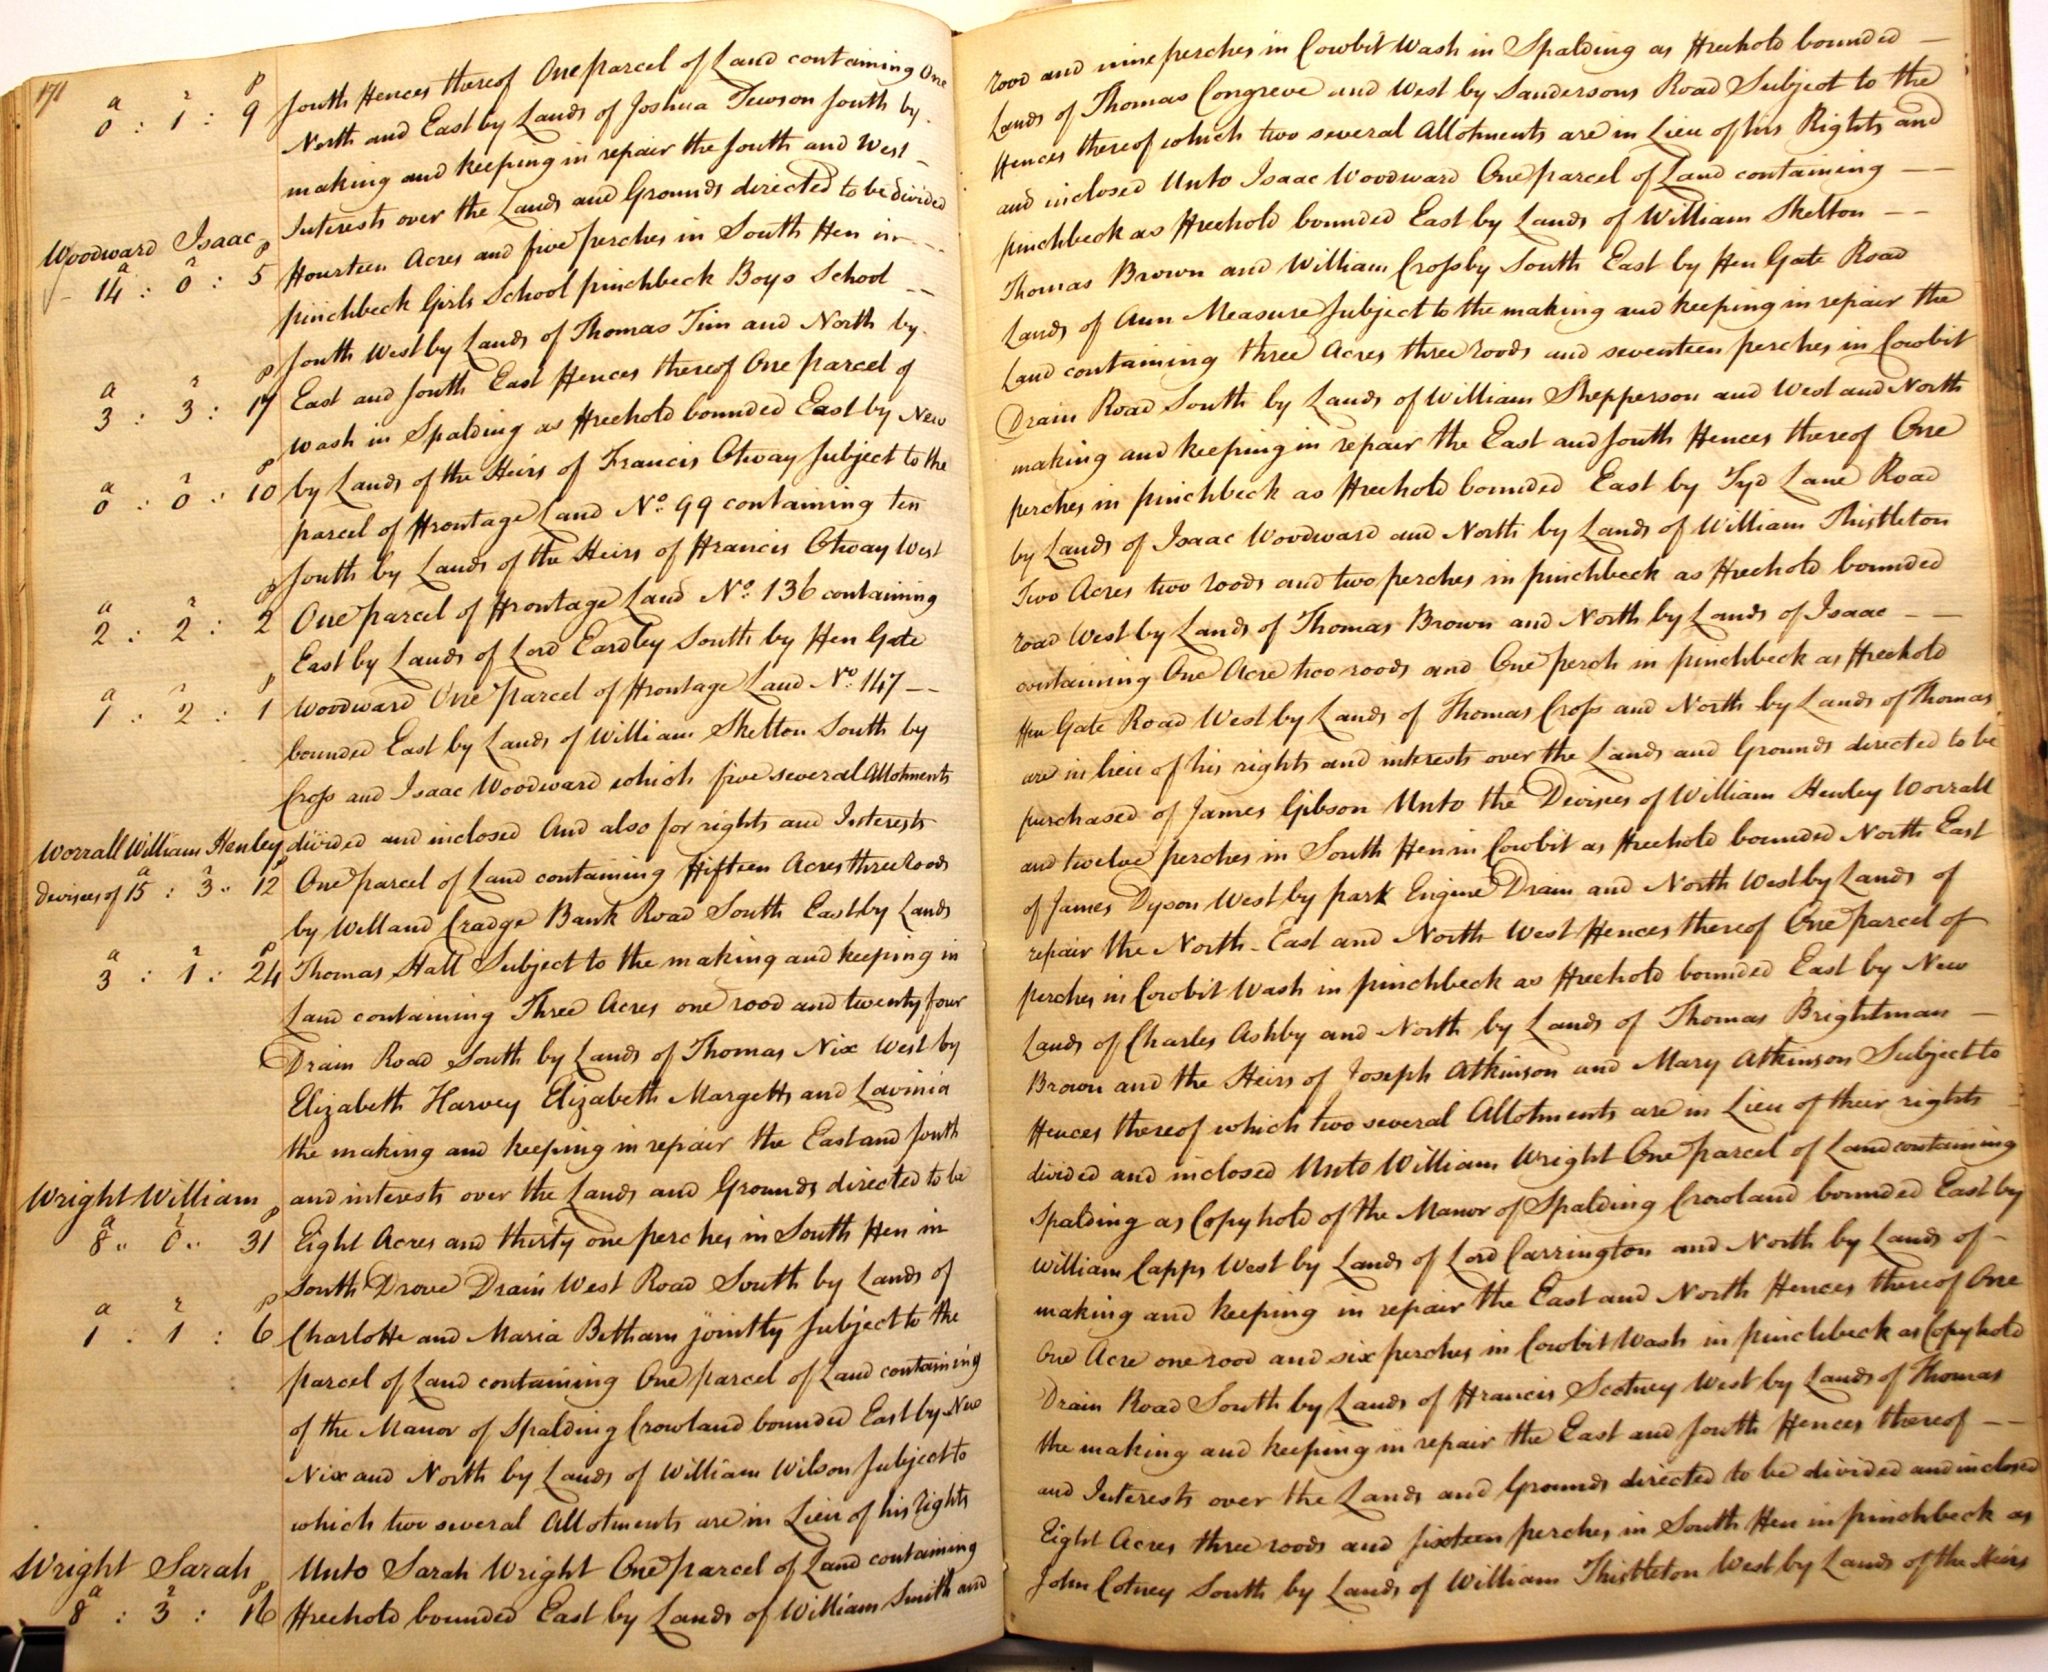 171
a r p
0 : 1 : 9 South Fences thereof One parcel of Land containing One rood and nine perches in Cowbit Wash in Spalding as Freehold bounded —
North and East by Lands of Joshua Tewson South by Lands of Thomas Congreve and West by Sandersons Road Subject to the
making and keeping in repair the South and West – Fences thereof which two several Allotments are in Lieu of his Rights and
Interests over the Lands and Grounds directed to be divided and inclosed Unto Isaac Woodward One parcel of Land containing — —
Woodward Isaac
a r p
14 : 0 : 5 Fourteen Acres and five perches in South Fen in — pinchbeck as Freehold bounded East by Lands of William Skelton — —
pinchbeck Girls School pinchbeck Boys School — Thomas Brown and William Crossby South East by Fen Gate Road
South West by Lands of Thomas Tim and North by Lands of Ann Measure Subject to the making and keeping in repair the
a r p
3 : 3 : 17 East and South East Fences thereof One parcel of Land containing three Acres three roods and seventeen perches in Cowbit
Wash in Spalding as Freehold bounded East by New Drain Road South by Lands of William Shepperson and West and North
by Lands of the Heirs of Francis Otway Subject to the making and keeping in repair the East and South Fences thereof One
a r p
0 : 0 : 10 parcel of Frontage Land No. 99 containing ten perches in pinchbeck as Freehold bounded East by Tyd Lane Road
South by Lands of the Heirs of Francis Otway West by Lands of Isaac Woodward and North by Lands of William Thistleton
a r p
2 : 2 : 2 One parcel of Frontage Land No. 136 containing Two Acres two roods and two perches in pinchbeck as Freehold bounded
East by Lands of Lord Eardley South by Fen Gate road West by Lands of Thomas Brown and North by Lands of Isaac — —
a r p
1 : 2 : 1 Woodward One parcel of Frontage Land No. 147 — containing One Acre two roods and One perch in pinchbeck as Freehold
bounded East by Lands of William Skelton South by Fen Gate Road West by Lands of Thomas Cross and North by Lands of Thomas
Cross and Isaac Woodward which five several Allotments are in lieu of his rights and interests over the Lands and Grounds directed to be
divided and inclosed And also for rights and Interests purchased of James Gibson Unto the Devisees of William Henley Worrall
Worrall William Henley
Devisees of
a r p
15 : 3 .. 12 One parcel of Land containing Fifteen Acres three roods and twelve perches in South Fen in Cowbit as Freehold bounded North East
by Welland Cradge Bank Road South East by Lands of James Dyson West by park Engine Drain and North West by Lands of
Thomas Hall Subject to the making and keeping in repair the North-East and North West Fences thereof One parcel of
a r p
3 : 1 : 24 Land containing Three Acres one rood and twenty four perches in Cowbit Wash in pinchbeck as Freehold bounded East by New
Drain Road South by Lands of Thomas Nix West by Lands of Charles Ashby and North by Lands of Thomas Brightman —
Elizabeth Harvey Elizabeth Margetts and Lavinia Brown and the Heirs of Joseph Atkinson and Mary Atkinson Subject to
the making and keeping in repair the East and South Fences thereof which two several Allotments are in Lieu of their rights
and interests over the Lands and Grounds directed to be divided and inclosed Unto William Wright One parcel of Land containing
Wright William
a r p
8 .. 0 .. 31 Eight Acres and thirty one perches in South Fen in Spalding as Copyhold of the Manor of Spalding Crowland bounded East by
South Drove Drain West Road South by Lands of William Capps West by Lands of Lord Carrington and North by Lands of –
Charlotte and Maria Betham jointly Subject to the making and keeping in repair the East and North Fences thereof One
a r p
1 : 1 : 6 parcel of Land containing One parcel of Land containing One Acre one rood and six perches in Cowbit Wash in pinchbeck as Copyhold
of the Manor of Spalding Crowland bounded East by New Drain Road South by Lands of Francis Scotney West by Lands of Thomas
Nix and North by Lands of William Wilson Subject to the making and keeping in repair the East and South Fences thereof — —
which two several Allotments are in Lieu of his rights and Interests over the Lands and Grounds directed to be divided and inclosed
Wright Sarah
a r p
8 : 3 : 16 Unto Sarah Wright One parcel of Land containing Eight Acres three roods and sixteen perches in South Fen in pinchbeck as
Freehold bounded East by Lands of William Smith and John Cotney South by Lands of William Thistleton West by Lands of the Heirs